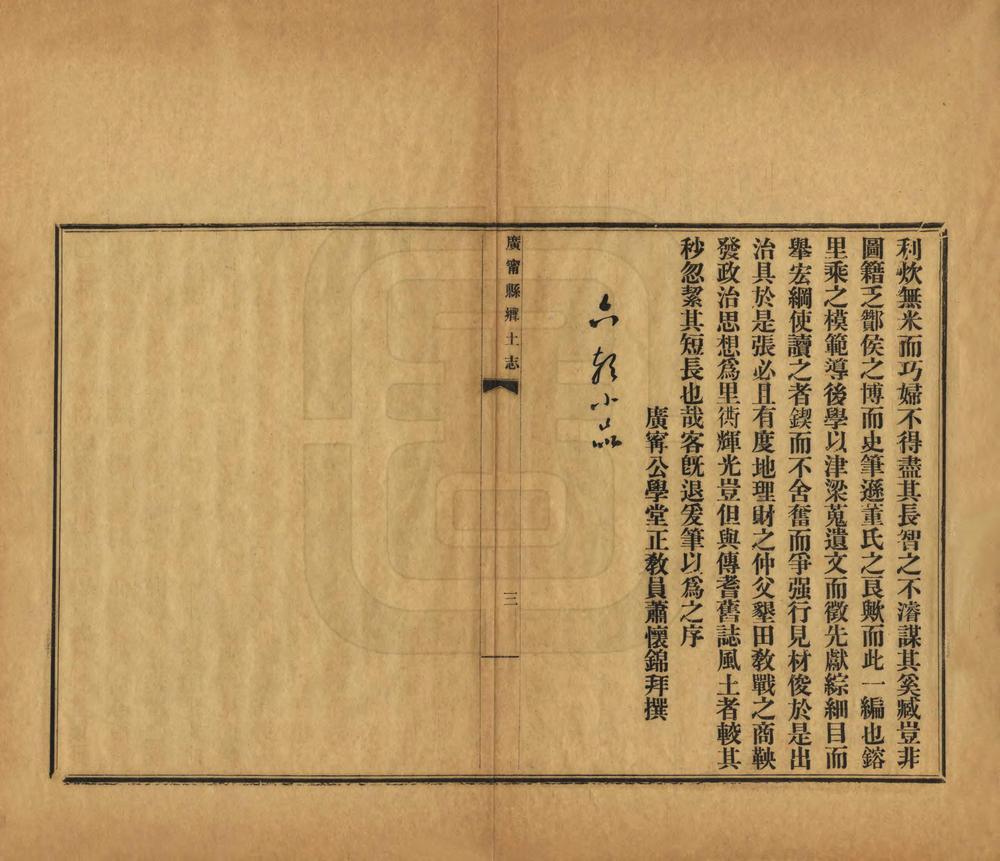 利炊無米而巧婦不得盡其長智之不濬謀其奚臧豈非
圖籍乏酇侯之博而史筆遜董氏之良歟而此一編也鎔
里乘之模範導後學以津梁蒐遺文而徵先獻綜細目而
舉宏綱使讀之者鍥而不舍奮而爭强行見材俊於是出
治具於是張必且有度地理財之仲父墾田教戰之商鞅
發政治思想爲里閈輝光豈但與傳耆舊誌風土者較其
秒忽絜其短長也哉客旣退爰筆以爲之序
廣甯公學堂正教員蕭懷錦拜撰
小品
廣甯縣鄕土志
三